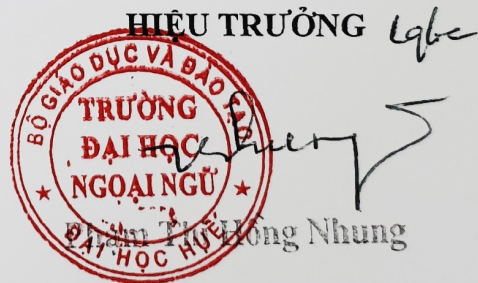 HIỆU TRƯỞNG
BỘ GIÁO DỤC VÀ ĐÀO TẠO
TRƯỜNG
ĐẠI HỌC
NGOẠI NGỮ
ĐẠI HỌC HUẾ
Phạm Thị Hồng Nhung